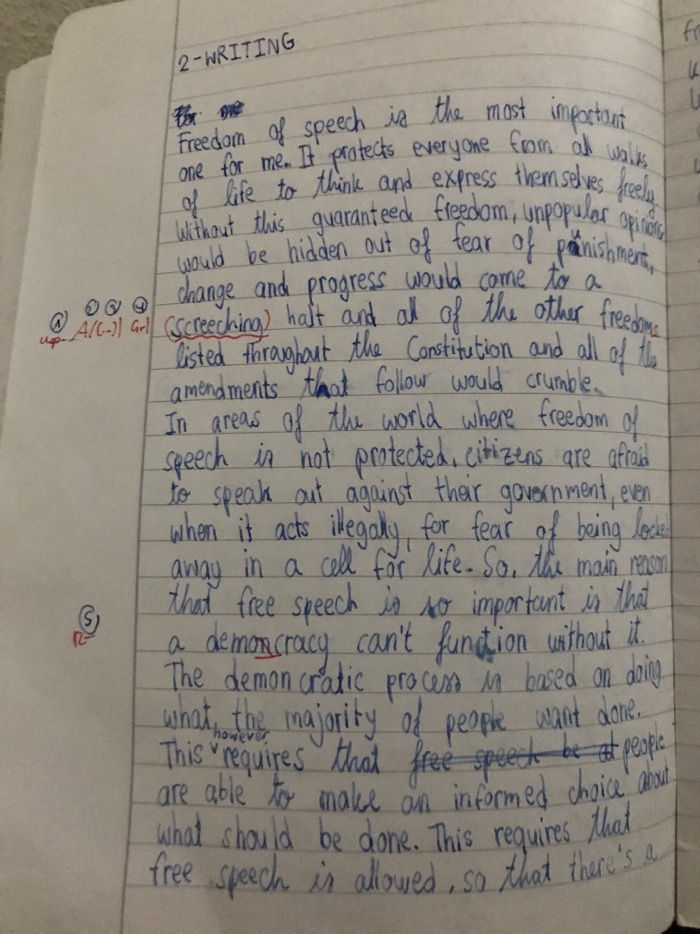 2-WRITING
Freedom of speech is the most important
one for me. It protects everyone from all walks
of life to think and express themselves freely.
Without this guaranteed freedom, unpopular opinions
would be hidden out of fear of punishment,
change and progress would come to a
(screeching) halt and all of the other freedoms
listed throughout the Constitution and all of the
amendments that follow would crumble.
In areas of the world where freedom of
speech is not protected, citizens are afraid
to speak out against their government, even
when it acts illegally, for fear of being locked
away in a cell for life. So, the main reason
that free speech is so important is that
5
a demoncracy can't function without it.
The demoncratic process is based on doing
what the majority of people want done.
This however requires that free speech be at people
are able to make an informed choice about
what should be done. This requires that
free speech is allowed, so that there's a